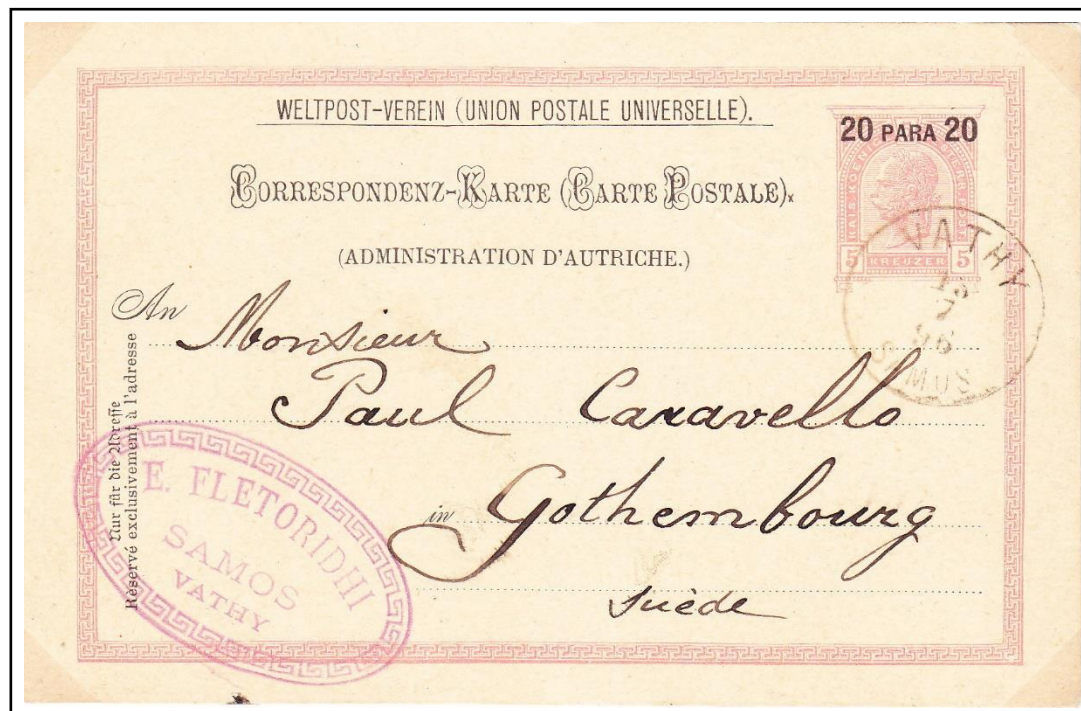 WELTPOST-VEREIN (UNION POSTALE UNIVERSELLE).
20 PARA 20
CORRESPONDENZ-KARTE (CARTE POSTALE).
(ADMINISTRATION D'AUTRICHE.)
5 KREUZER 5
VATHY
96
SAMOS
An Monsieur
Paul Caravello
in Gothembourg
Suède
Nur für die Adresse
Réservé exclusivement à l'adresse
E. FLETORIDHI
SAMOS
VATHY